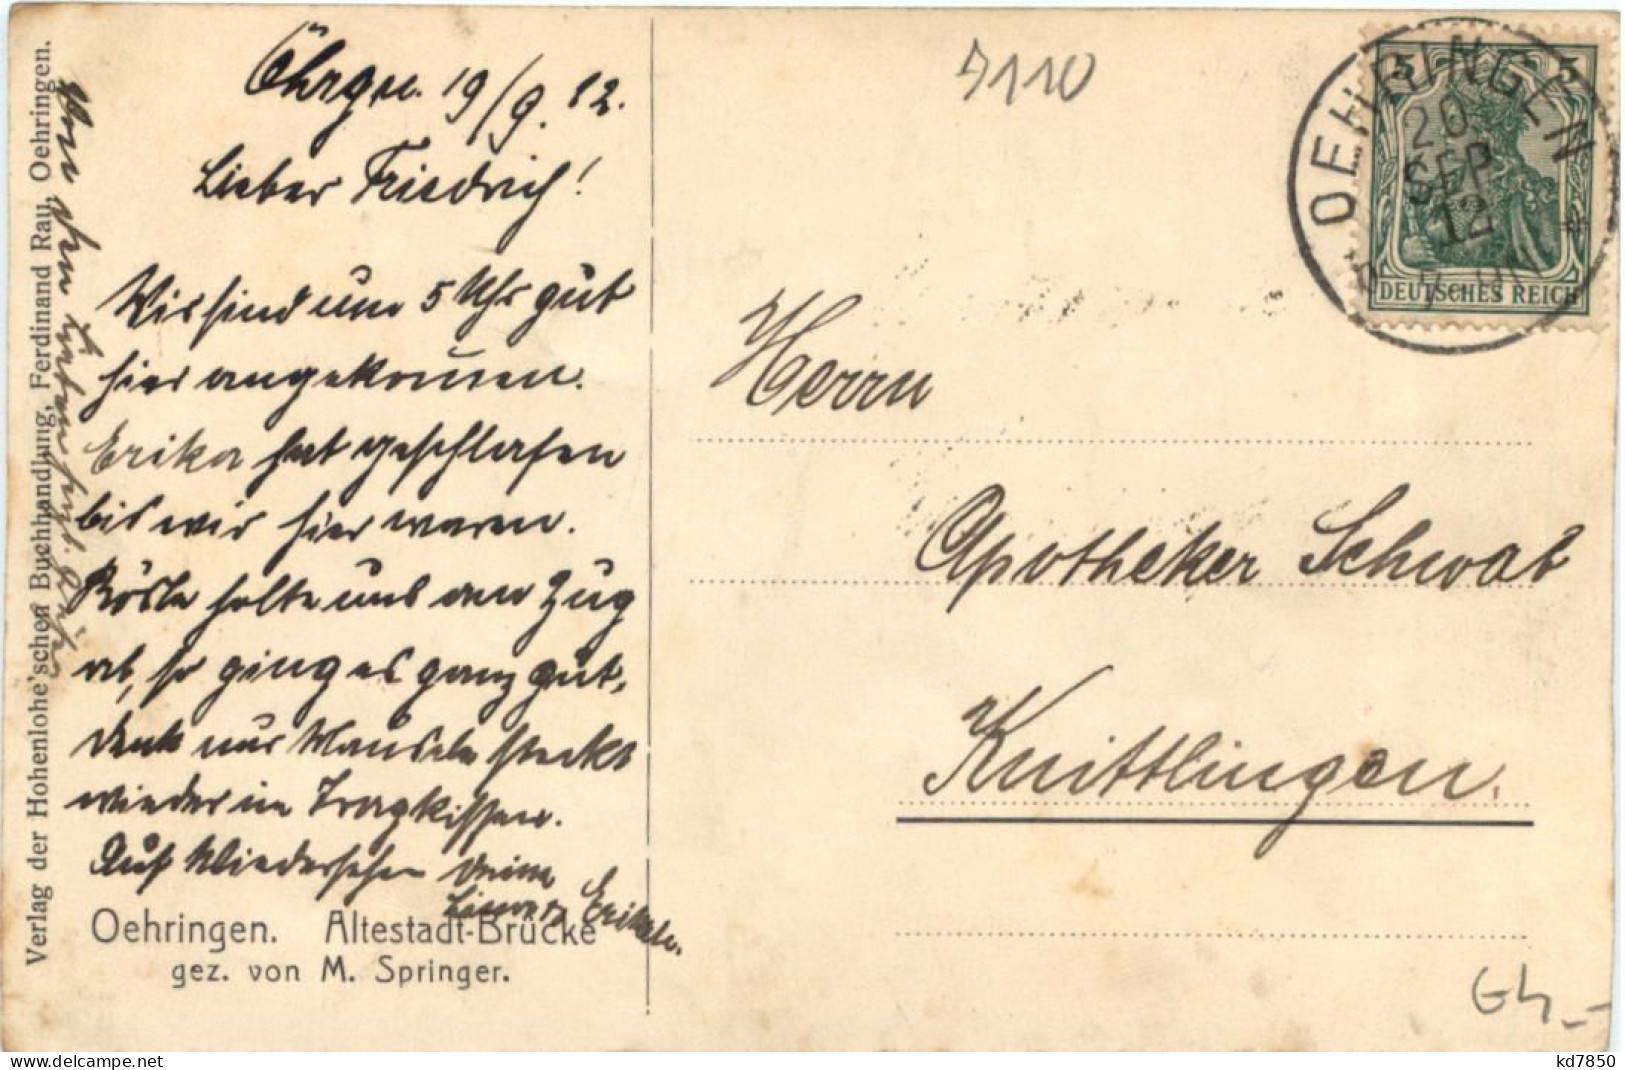 Öhrgen. 19/9. 12.
Lieber Friedrich!
Wir sind um 5 Uhr gut
hier angekommen.
Erika hat geschlafen
bis wir hier waren.
Rösle holte uns am Zug
ab, so ging es ganz gut,
denk nur Mausele steckt
wieder im Tragkissen.
Auf Wiedersehen Deine
Erikale.
Oehringen. Altestadt-Brücke
gez. von M. Springer.
Verlag der Hohenlohe'schen Buchhandlung, Ferdinand Rau, Oehringen.
Von den Lieben herzl. Grüße
9110
OEHRINGEN
20
SEP
12
5 5
DEUTSCHES REICH
Herrn
Apotheker Schwab
Knittlingen.
www.delcampe.net
kd7850